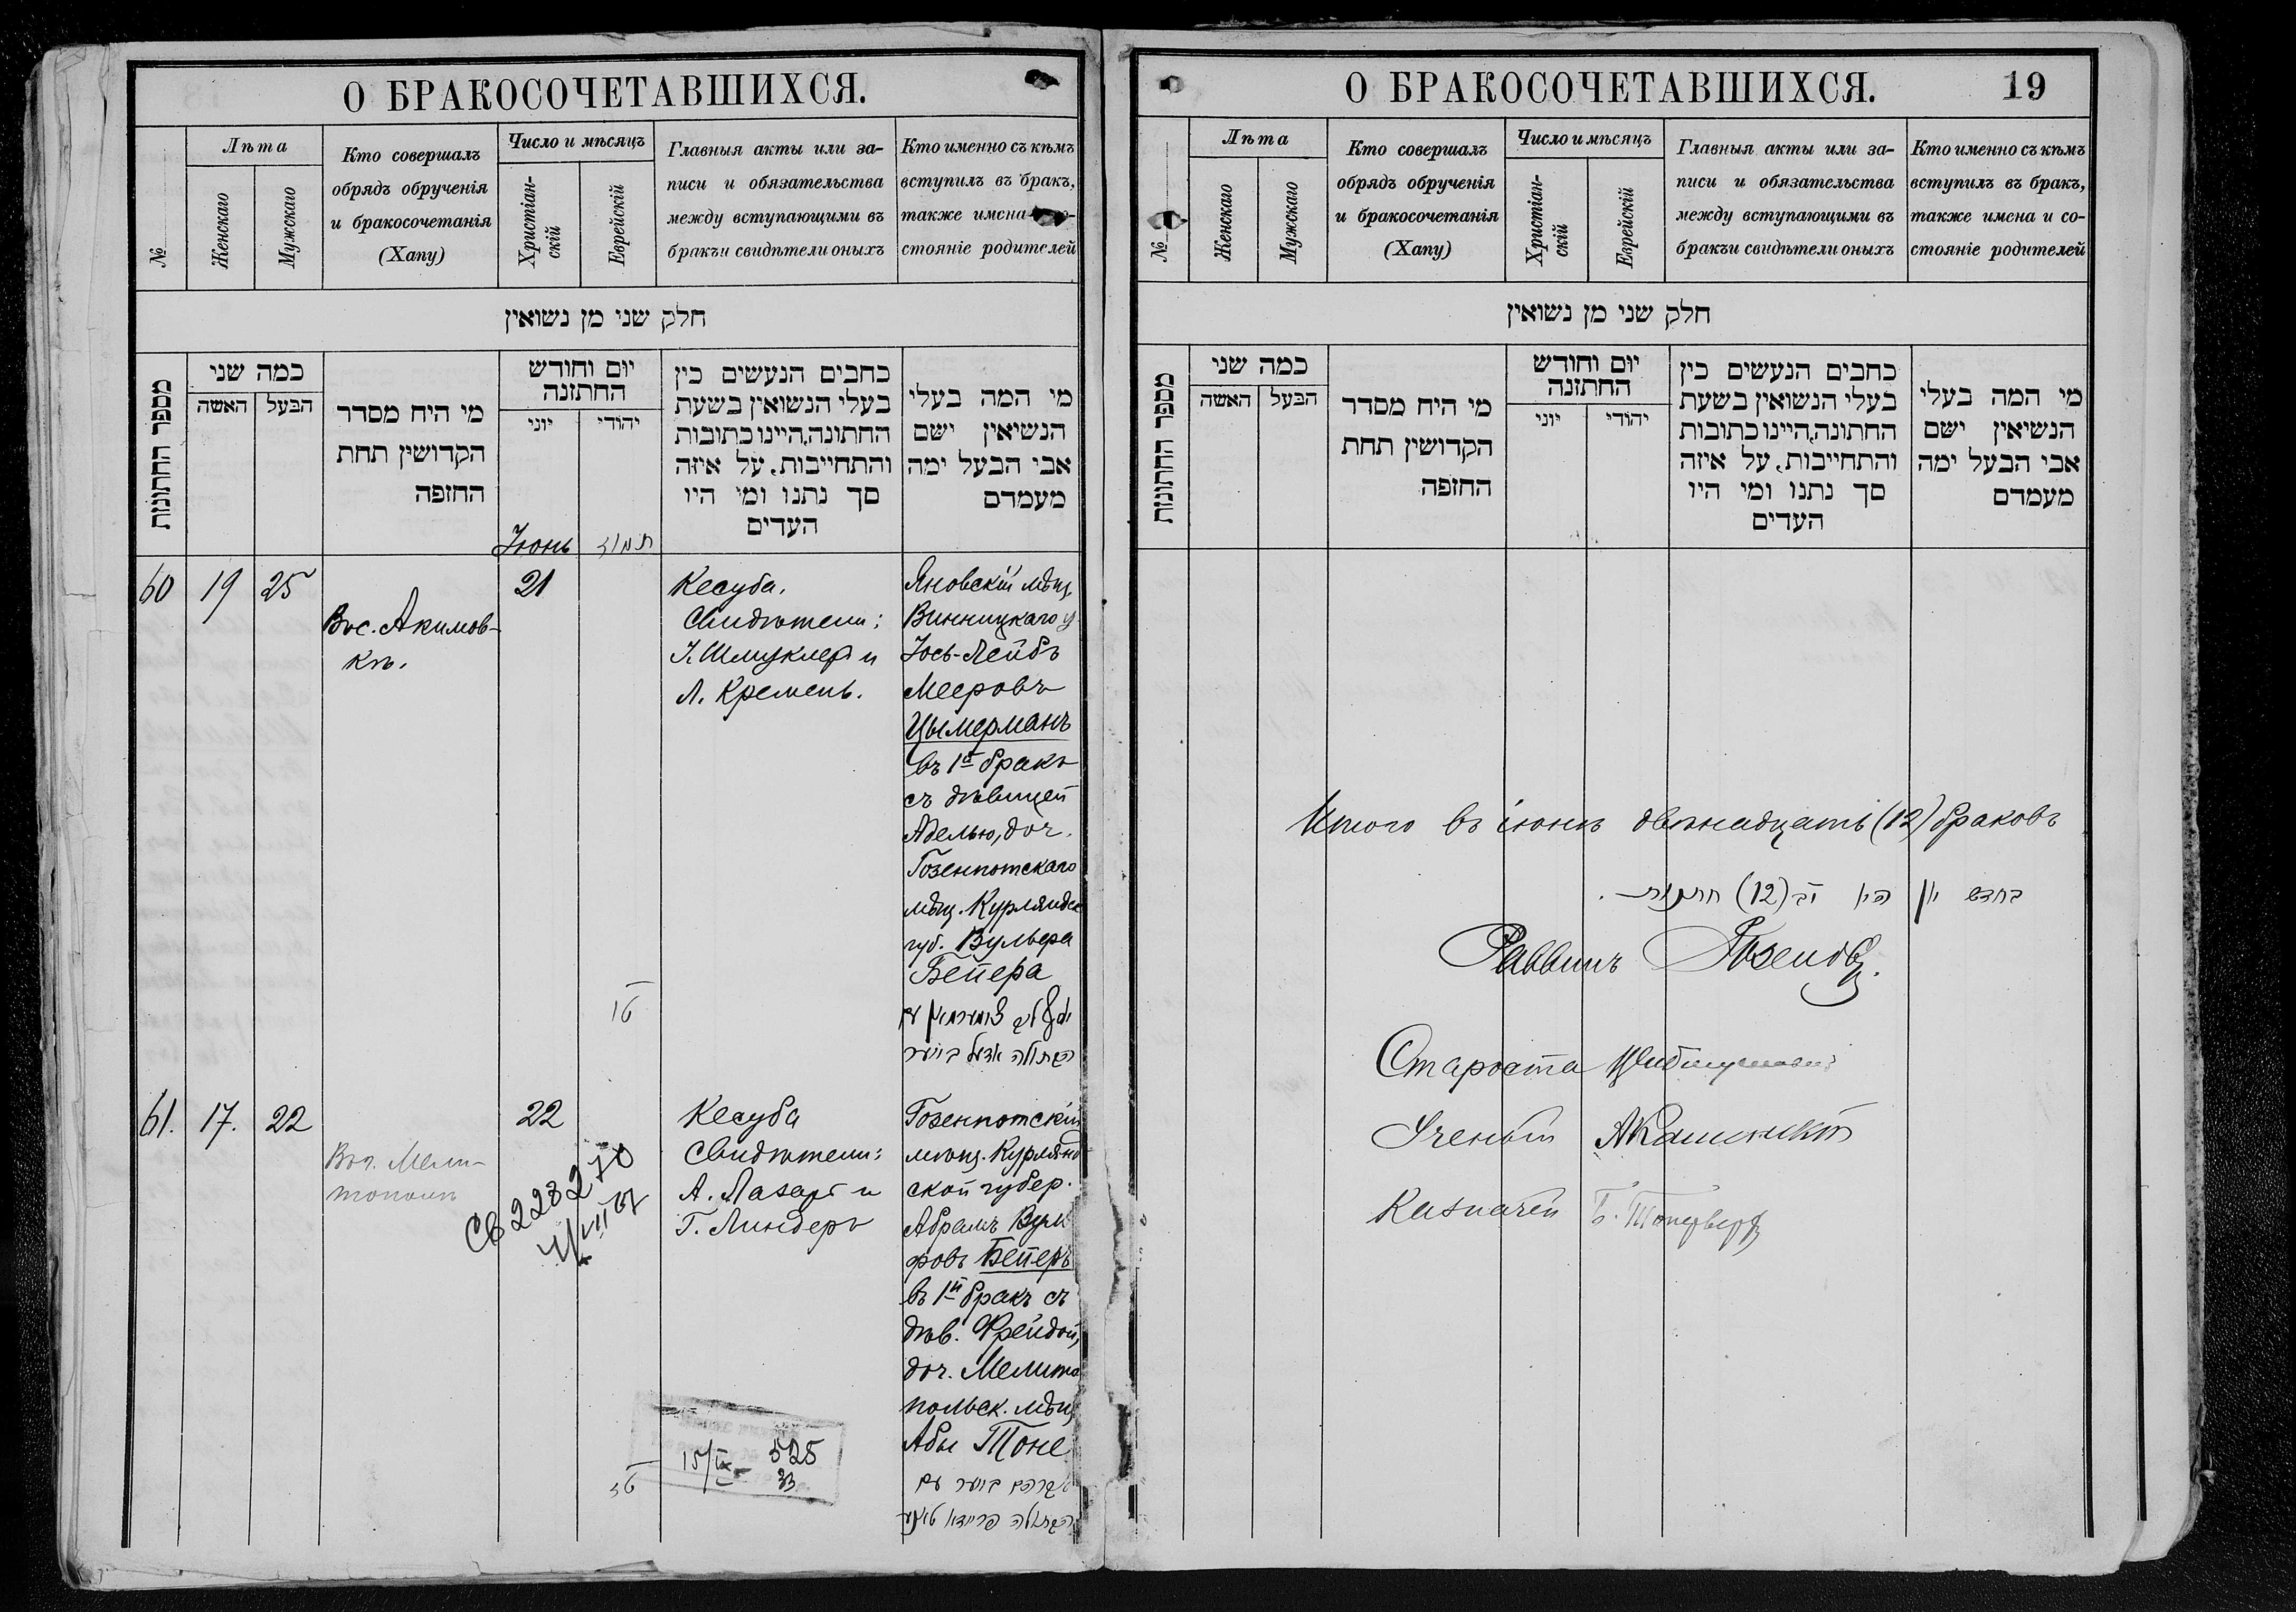 О БРАКОСОЧЕТАВШИХСЯ.
№
Лѣта
Женскаго
Мужскаго
Кто совершалъ
обрядъ обрученія
и бракосочетанія
(Хапу)
Число и мѣсяцъ
Христіан-
скій
Еврейскій
Главныя акты или за-
писи и обязательства
между вступающими въ
бракъ и свидѣтели оныхъ
Кто именно съ кѣмъ
вступилъ въ бракъ,
также имена
стояніе родителей
חלק שני מן נשואין
מספר החתונות
כמה שני
האשה
הבעל
מי היח מסדר
הקדושין תחת
החופה
יום וחודש
החתונה
יוני
יהודי
כתבים הנעשים בין
בעלי הנשואין בשעת
החתונה, היינו כתובות
והתחייבות, על איזה
סך נתנו ומי היו
העדים
מי המה בעלי
הנשיאין ישם
אבי הבעל ימה
מעמדם
Іюнь
תמוז
60
19
25
Вос. Акимов-
кѣ.
21
טו
Кесуба.
Свидѣтели:
І. Шмуклеръ и
Л. Кремень.
Яновскій мѣщ.
Винницкаго у
Іось-Лейбъ
Мееровъ
Цымерманъ
въ 1й бракъ
съ дѣвицей
Аделью, доч.
Газенпотскаго
мѣщ. Курляндск
губ. Вульфа
Бейера
הבתולה אדעל בייער
61.
17.
22
Воз. Мели-
тополь
22
טז
Кесуба
Свидѣтели:
А. Лазаръ и
Г. Линдеръ
Газенпотскій
мѣщ. Курлянд
ской губер.
Абрамъ Вуль
фовъ Бейеръ
въ 1й бракъ съ
дѣв. Фрейдой,
доч. Мелито
польск. мѣщ
Абы Тоне
אברהם בייער עם
הבתולה פריידא טאנע
СВ 228270
15/IX - 525
33
О БРАКОСОЧЕТАВШИХСЯ.
19
№
Лѣта
Женскаго
Мужскаго
Кто совершалъ
обрядъ обрученія
и бракосочетанія
(Хапу)
Число и мѣсяцъ
Христіан-
скій
Еврейскій
Главныя акты или за-
писи и обязательства
между вступающими въ
бракъ и свидѣтели оныхъ
Кто именно съ кѣмъ
вступилъ въ бракъ,
также имена и со-
стояніе родителей
חלק שני מן נשואין
מספר החתונות
כמה שני
האשה
הבעל
מי היח מסדר
הקדושין תחת
החופה
יום וחודש
החתונה
יוני
יהודי
כתבים הנעשים בין
בעלי הנשואין בשעת
החתונה, היינו כתובות
והתחייבות, על איזה
סך נתנו ומי היו
העדים
מי המה בעלי
הנשיאין ישם
אבי הבעל ימה
מעמדם
Итого въ іюнѣ двѣнадцать (12) браковъ
בחדש יון היו יב (12) חתונות.
Раввинъ
Староста
Ученый
Казначей